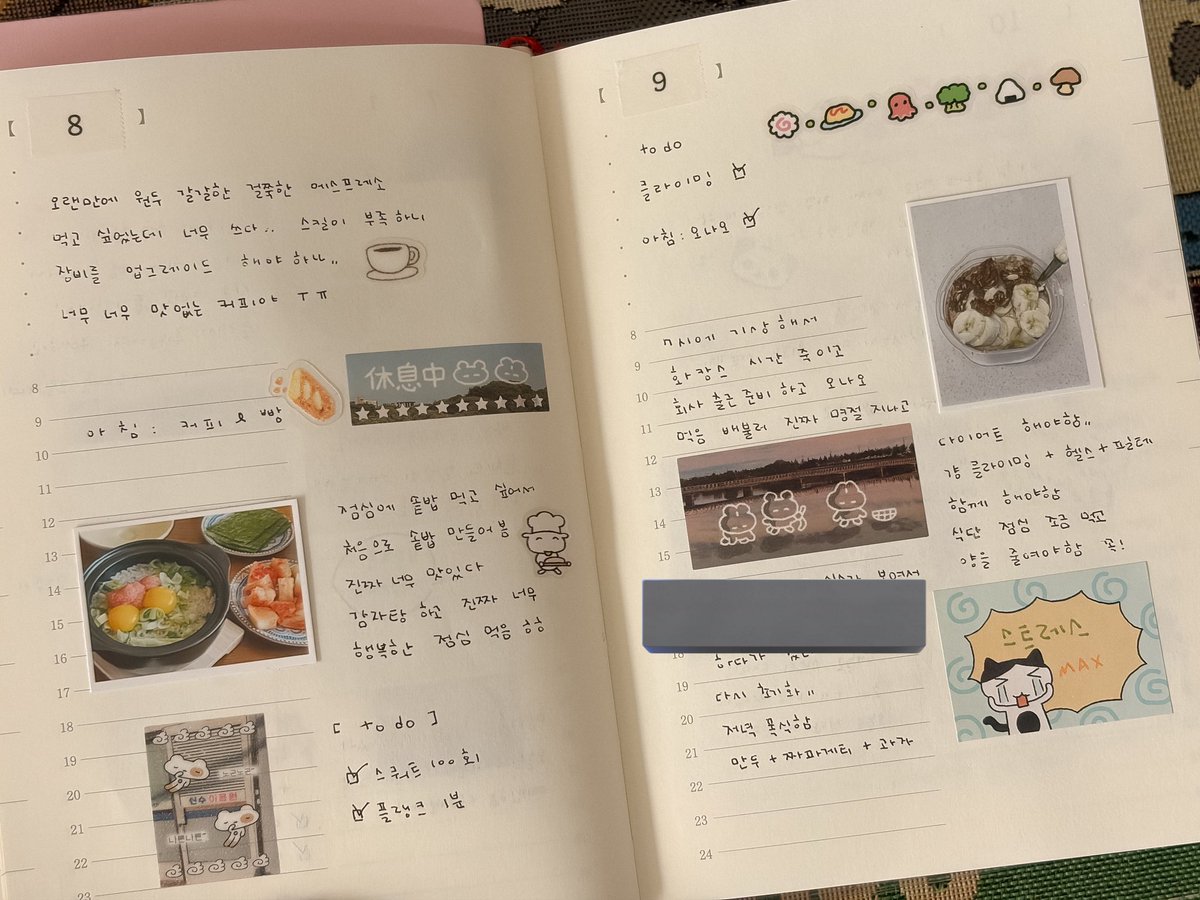 8
오랜만에 원두 갈갈한 걸쭉한 에스프레소
먹고 싶었는데 너무 쓰다.. 스킬이 부족하니
장비를 업그레이드 해야하나..
너무 너무 맛없는 커피야 ㅜㅠ
休息中
8
9
아침 : 커피 & 빵
10
11
12
13
14
15
16
17
점심에 솥밥 먹고 싶어서
처음으로 솥밥 만들어봄
진짜 너무 맛있다
감자탕 하고 진짜 너무
행복한 점심 먹음 핳
18
19
20
21
22
23
[ to do ]
스쿼트 100회
플랭크 1분
노곤노곤
이용원
나른나른
9
to do
클라이밍
아침 : 오나오
8
9
10
11
12
13
14
15
7시에 기상해서
화장스 시간 죽이고
회사 출근 준비 하고 오나오
먹음 배불러 진짜 명절 지나고
다이어트 해야함..
걍 클라이밍 + 헬스 + 필테
함께 해야함
식단 점심 조금 먹고
양을 줄여야함 꼭!
보여서
18
19
20
21
22
23
24
하다가
다시 초기화..
저녁 폭식함
만두 + 짜파게티 + 과자
스트레스
MAX